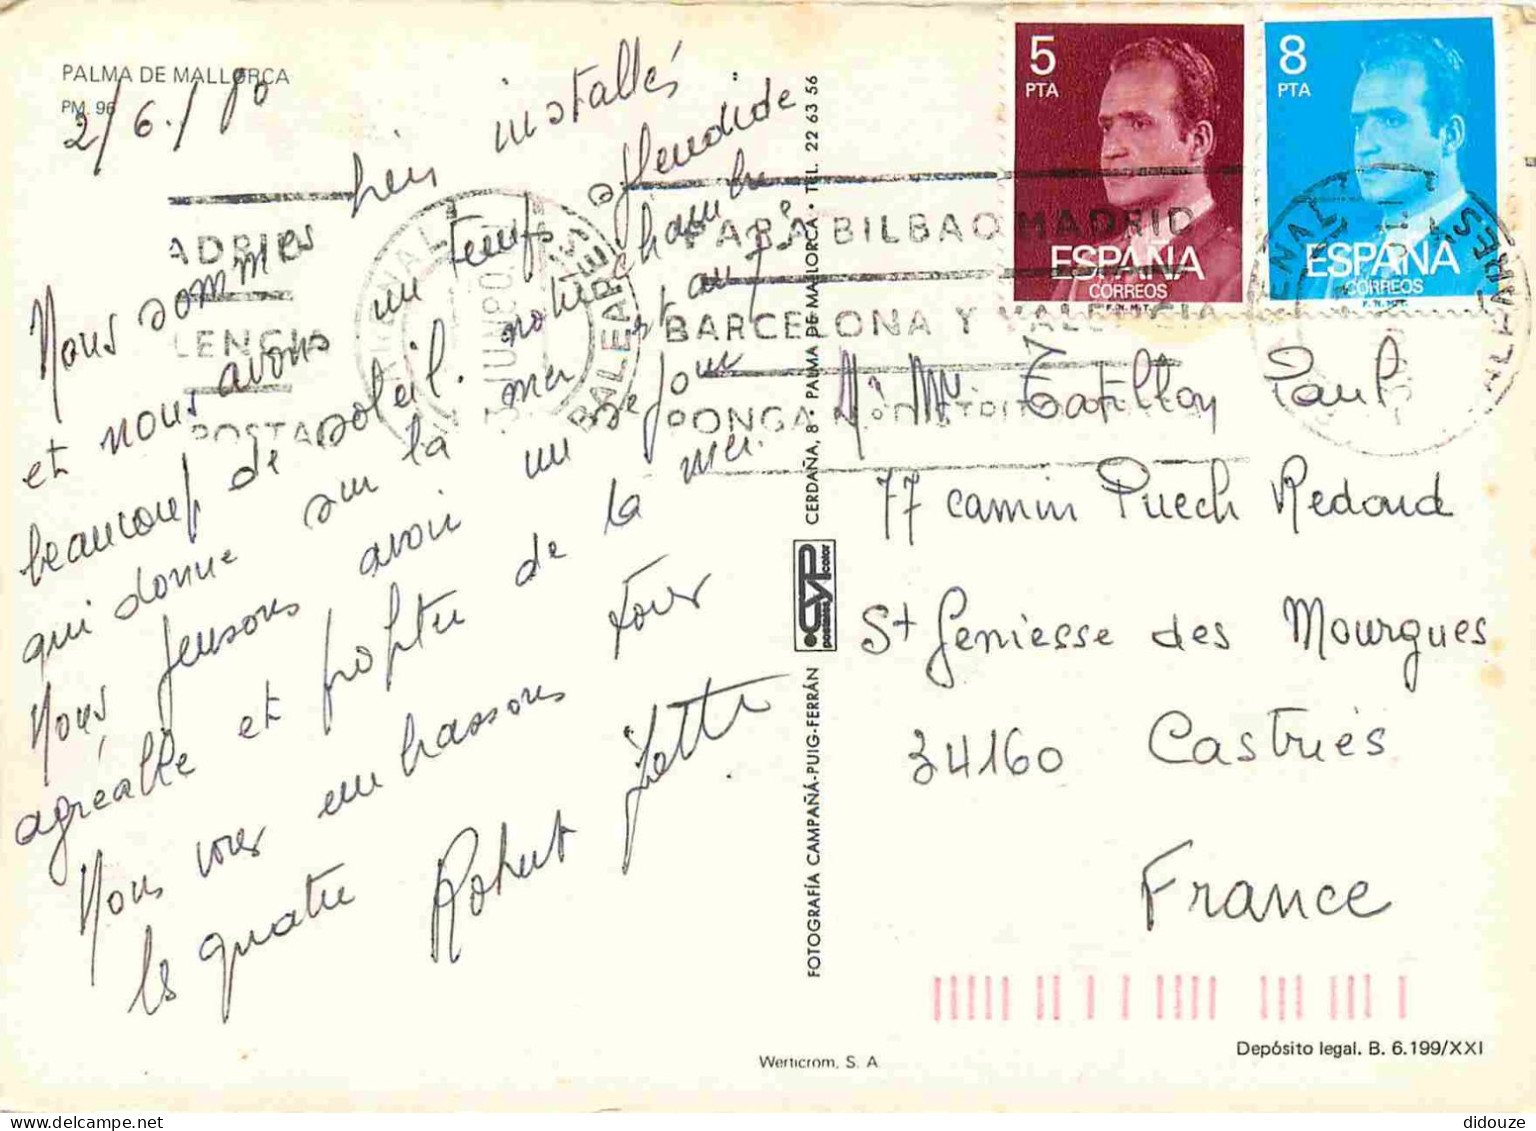 PALMA DE MALLORCA
PM. 96
2/6./80
Nous sommes bien installés
et nous avons un temps splendide
beaucoup de soleil. notre chambre
qui donne sur la mer est au 7e
Nous pensons avoir un séjour
agréable et profiter de la mer.
Nous vous embrassons tous
les quatre Robert
CERDAÑA, 8 • PALMA DE MALLORCA • TEL. 22 63 56
CYP
postales color
FOTOGRAFÍA CAMPAÑÁ-PUIG-FERRÁN
5
PTA
ESPAÑA
CORREOS
F.N.M.T.
8
PTA
ESPAÑA
CORREOS
F.N.M.T.
PARA BILBAO MADRID
BARCELONA Y VALENCIA
PONGA Nº DISTRITO
ADRID
LENCIA
POSTAL
ARENAL
BALEARES
ARENAL
BALEARES
Mr Mme Tatillon Paul
77 camin Puech Redond
St Geniesse des Mourgues
34160 Castries
France
Depósito legal. B. 6.199/XXI
Werticrom, S. A
didouze